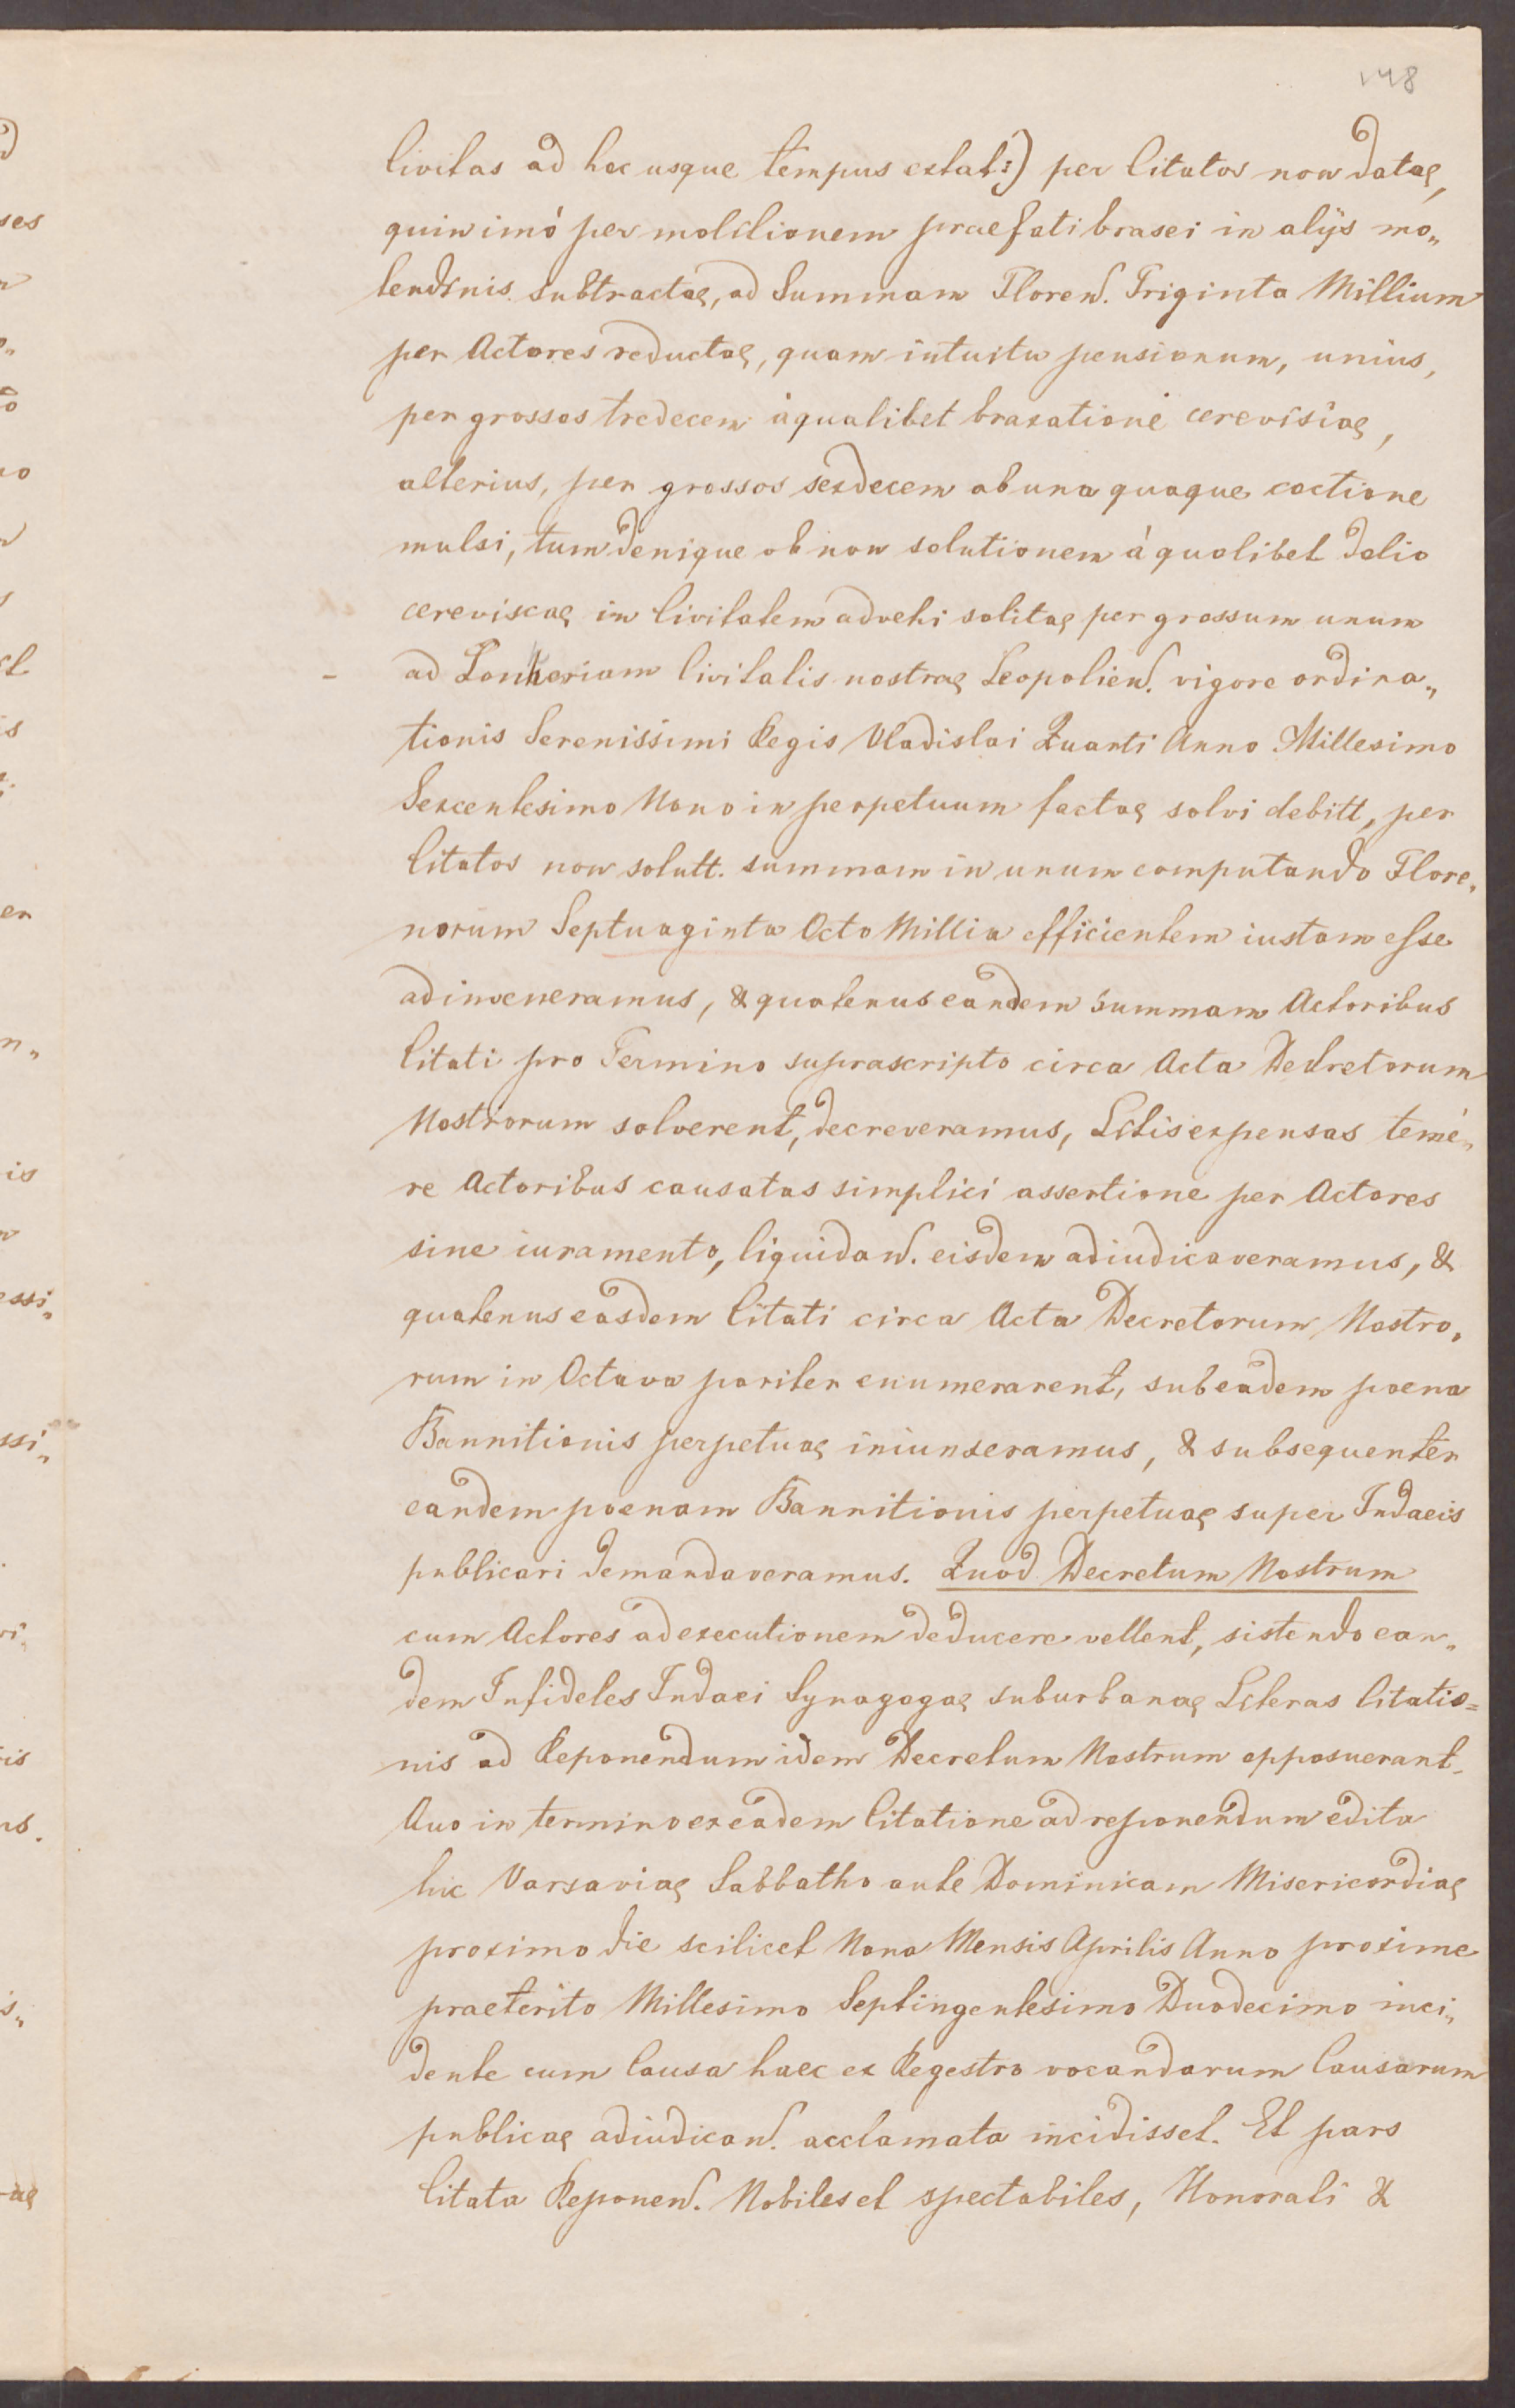 148
Civitas ad hec usque tempus extat:) per Citatos non datae,
quinimó per molitionem praefati brasei in alijs mo„
lendinis subtractae, ad Summam Floren. Triginta Millium
per Actores reductae, quam intuitu pensionum, unius,
per grossos tredecem áqualibet braxatione cerevisiae,
alterius, per grossos sexdecem ab una quaque coctione
mulsi, tum denique ob non solutionem á quolibet dolio
cerevisiae in Civitatem advehi solitae per grossum unum
ad Lonheriam Civitatis nostrae Leopolien. vigore ordina„
tionis Serenissimi Regis Vladislai Quarti Anno Millesimo
Sexcentesimo Nono in perpetuum factae solvi debitt, per
Citatos non solutt. summam in unum computando Flore„
norum Septuaginta Octo Millia efficientem iustam esse
adinveneramus, & quatenus eandem summam Actoribus
Citati pro Termino suprascripto circa Acta Decretorum
Nostrorum solverent, decreveramus, Litis expensas temé„
re Actoribus causatas simplici assertione per Actores
sine iuramento, liquidan. eisdem adiudicaveramus, &
quatenus easdem Citati circa Acta Decretorum Nostro„
rum in Octava pariter enumerarent, sub eadem poena
Bannitionis perpetuae iniunxeramus, & subsequenter
eandem poenam Bannitionis perpetuae super Iudaeis
publicari demandaveramus. Quod Decretum Nostrum
cum Actores ad executionem deducere vellent, sistendo ean„
dem Infideles Iudaei Synagogae suburbanae Literas Citatio=
nis ad Reponendum idem Decretum Nostrum opposuerant.
Quo in termino ex eadem Citatione ad reponendum edita
hic Varsaviae Sabbatho ante Dominicam Misericordiae
proximo die scilicet Nona Mensis Aprilis Anno proxime
praeterito Millesimo Septingentesimo Duodecimo inci„
dente cum Causa haec ex Regestro vocandarum Causarum
publicae adiudican. acclamata incidisset. Et pars
Citata Reponen. Nobiles et spectabiles, Honorati &